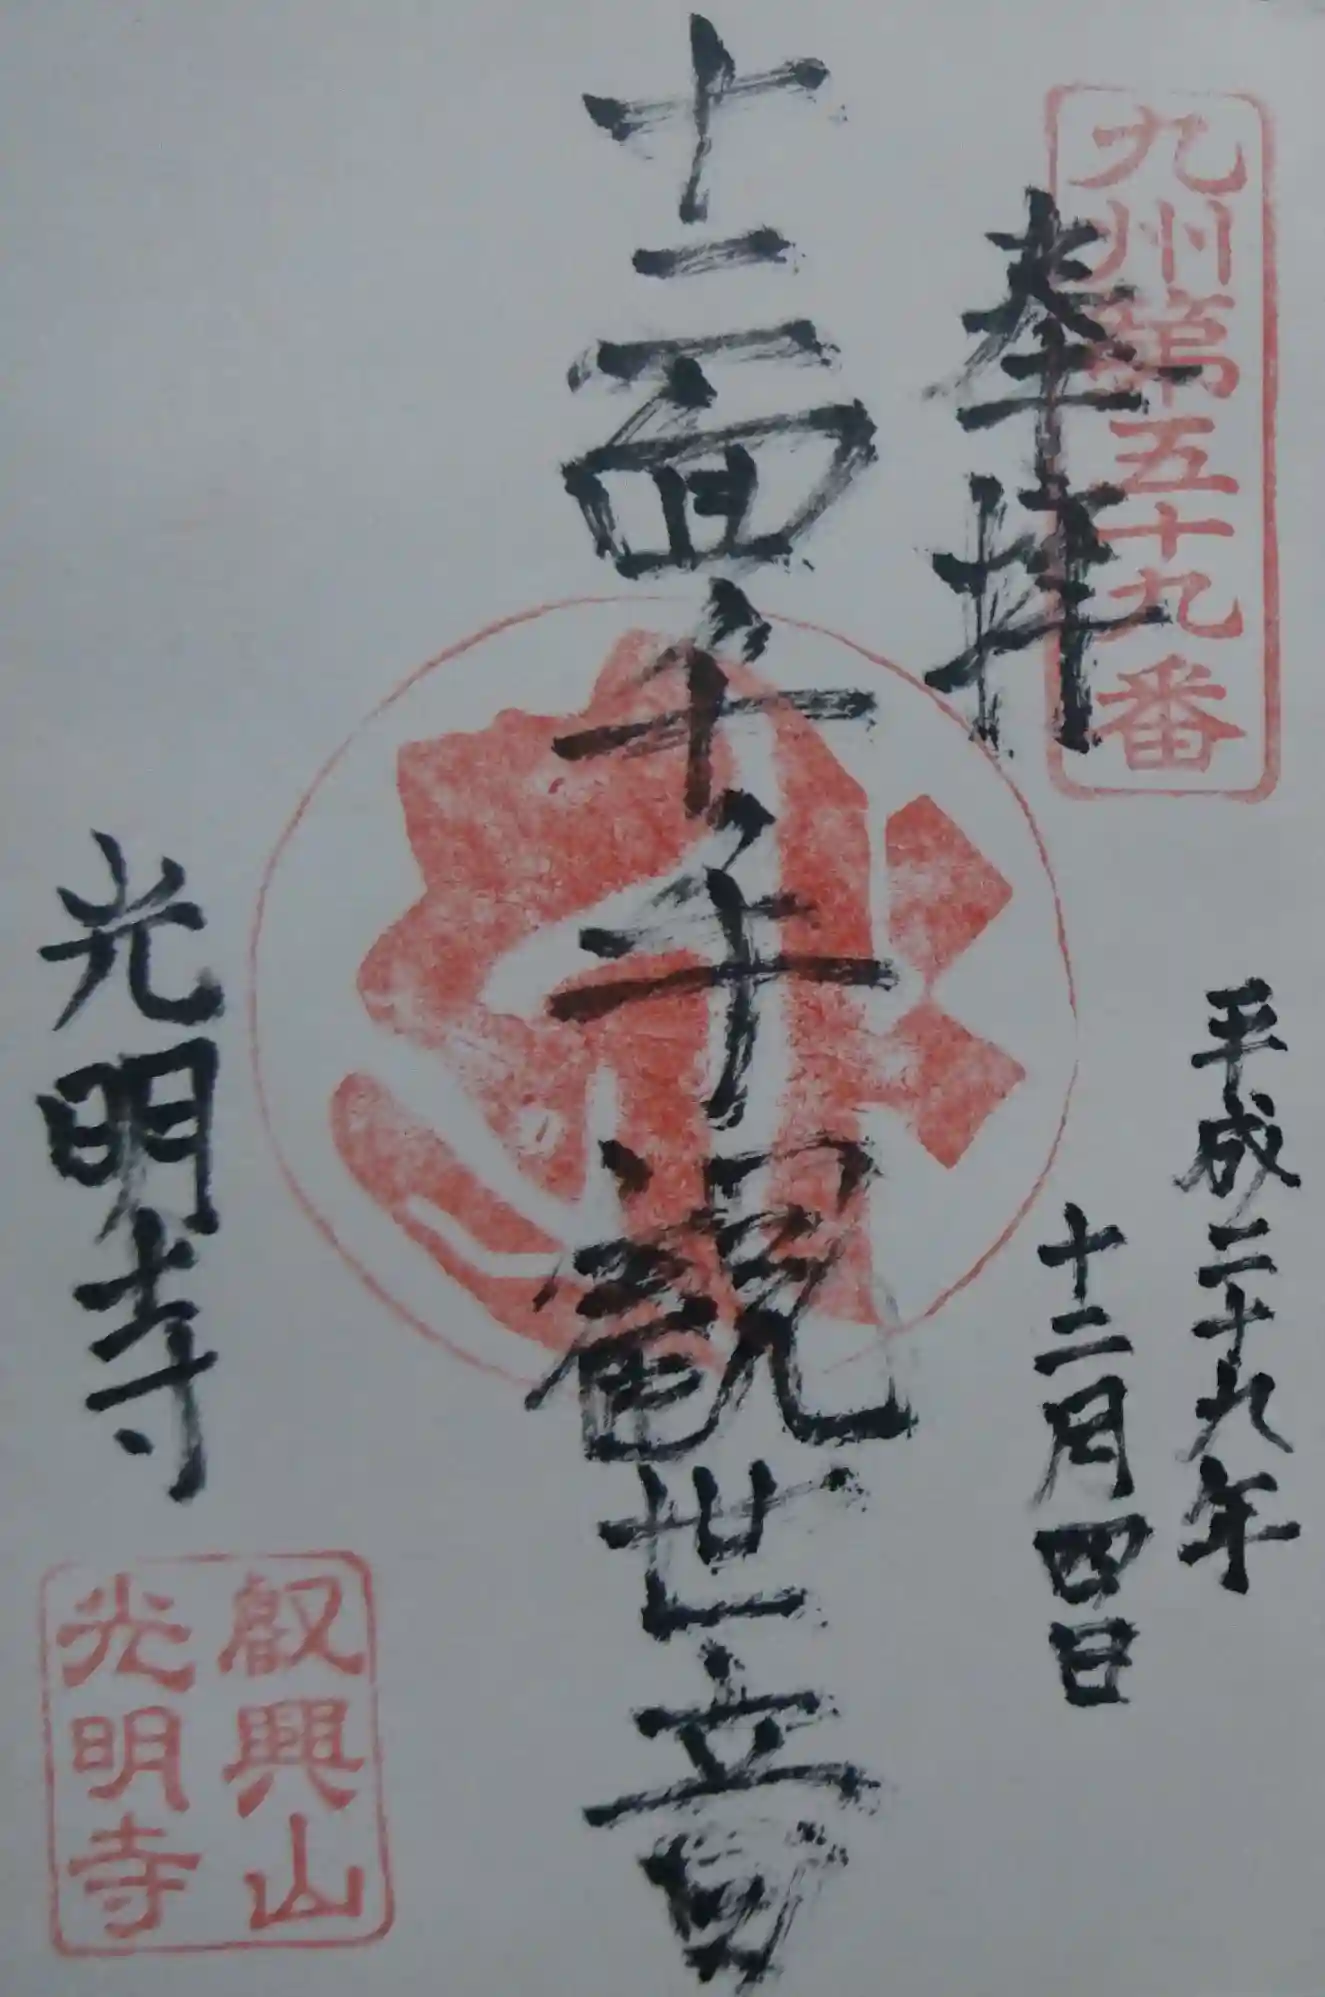 九州第五十九番
奉拝
平成二十九年
十二月四日
十一面千手観世音
光明寺
叡興山
光明寺